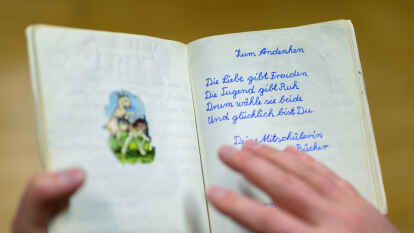 Zum Andenken
Die Liebe gibt Freuden
Die Tugend gibt Ruh
Drum wähle sie beide
Und glücklich bist Du.
Deine Mitschülerin
Bücher